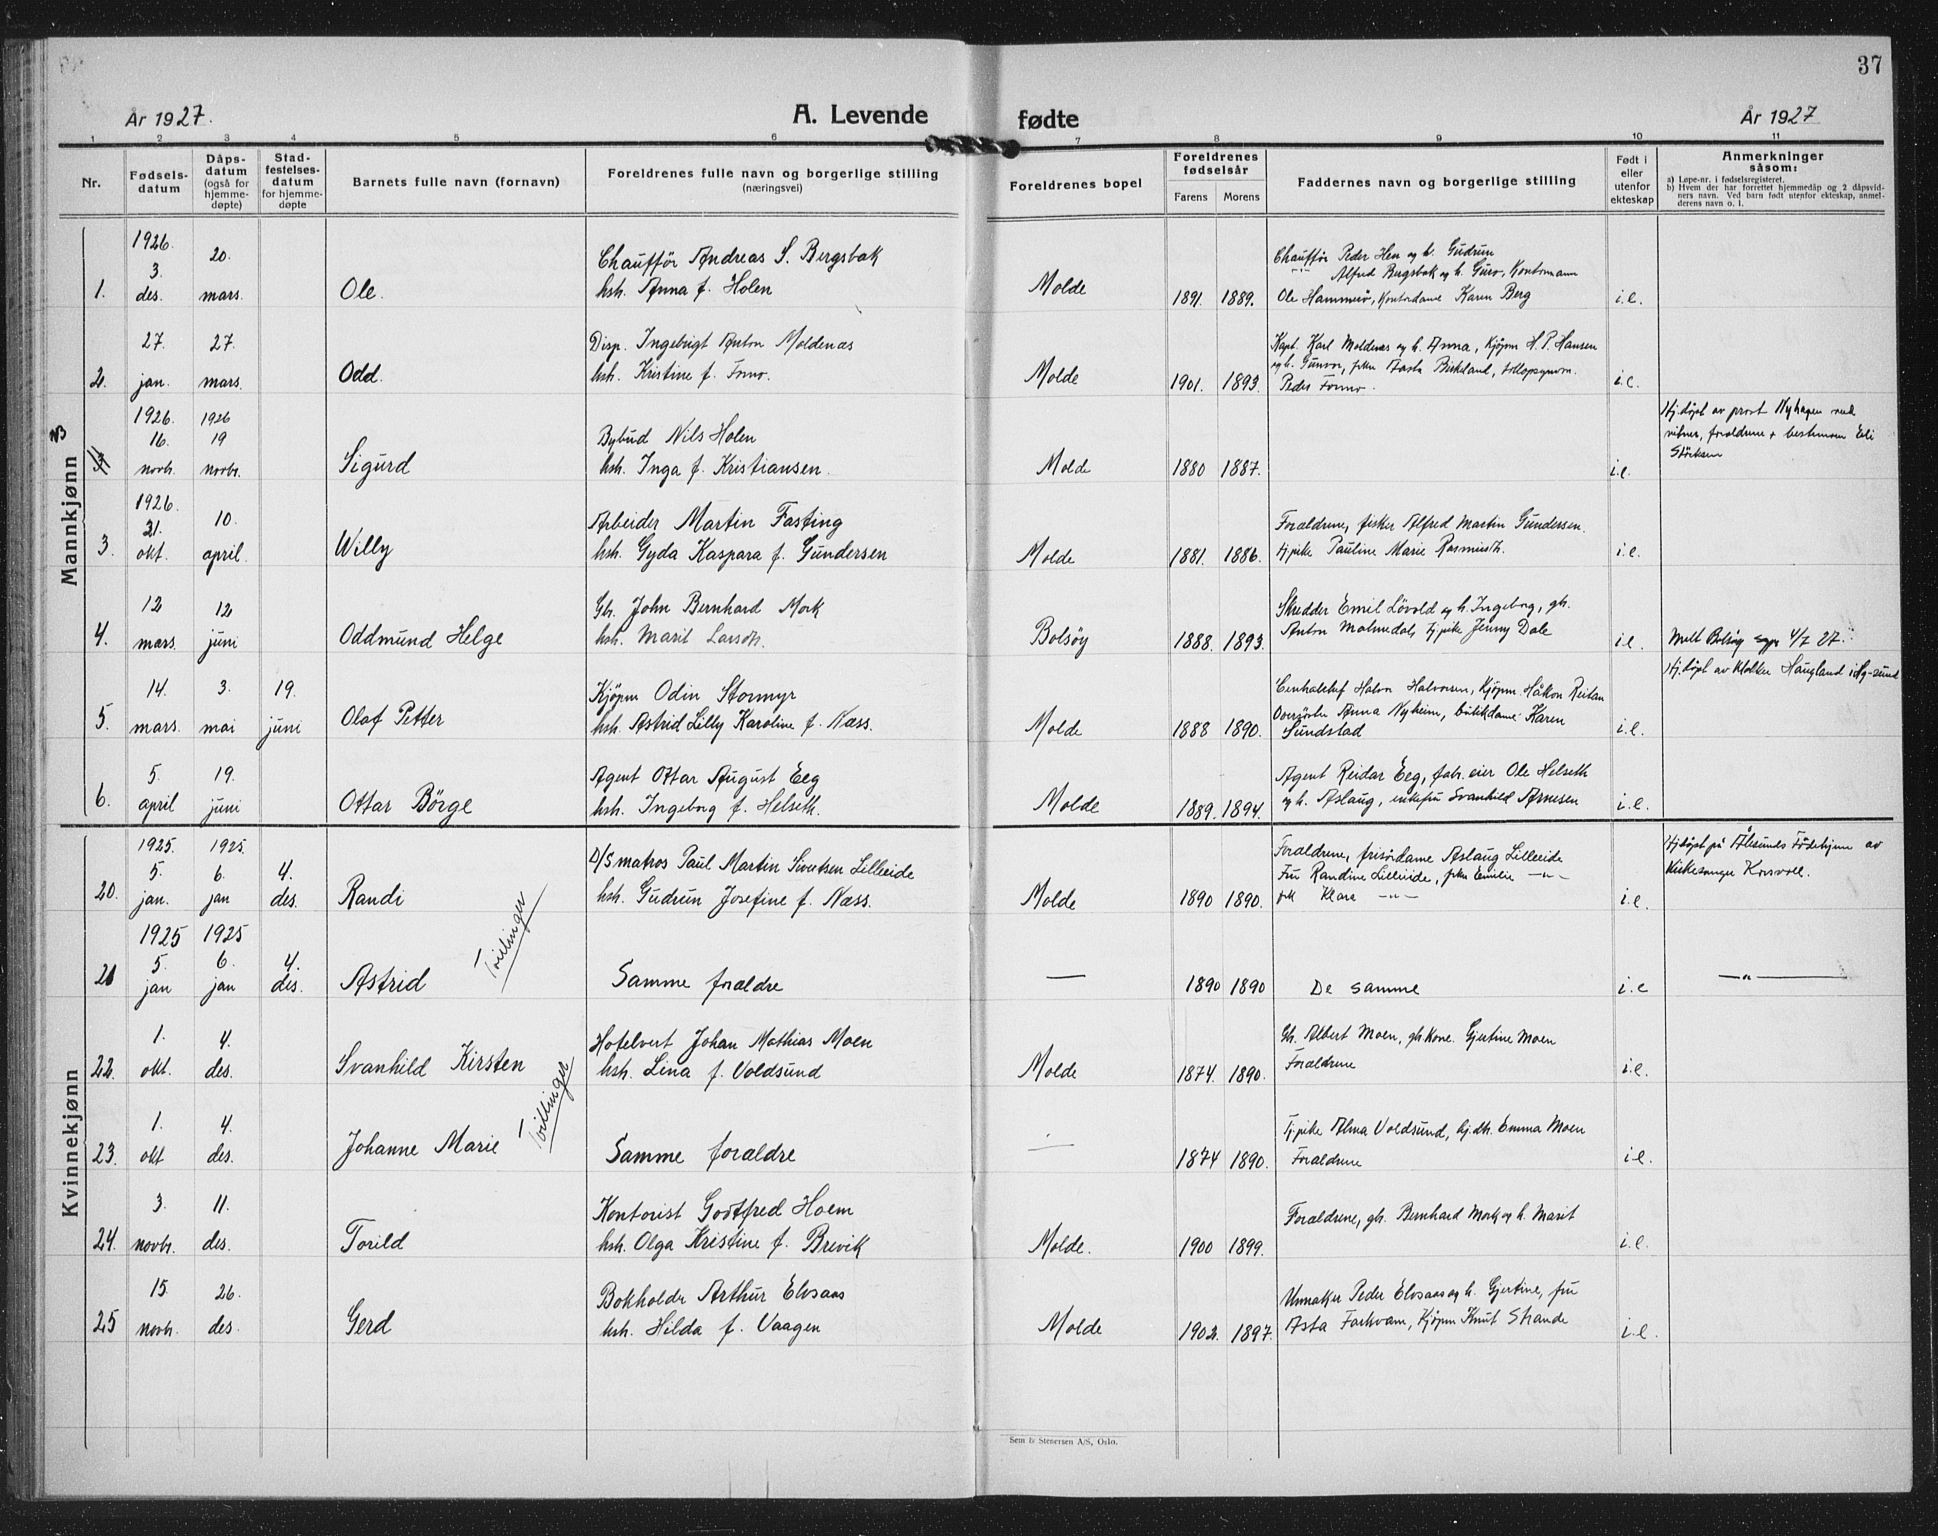 37
År 1927.
A. Levende
fødte
År 1927
1 2 3 4 5 6 7 8 9 10 11
Nr.
Fødsels-
datum
Dåps-
datum
(også for
hjemme-
døpte)
Stad-
festelses-
datum
for hjemme-
døpte
Barnets fulle navn (fornavn)
Foreldrenes fulle navn og borgerlige stilling
(næringsvei)
Foreldrenes bopel
Foreldrenes
fødselsår
Farens Morens
Faddernes navn og borgerlige stilling
Født i
eller
utenfor
ekteskap
Anmerkninger
såsom:
a) Løpe-nr. i fødselsregisteret.
b) Hvem der har forrettet hjemmedåp og 2 dåpsvid-
ners navn. Ved barn født utenfor ekteskap, anmel-
derens navn o. l.
Mannkjønn
1. 1926. 3. des. 20. mars. Ole.
Chauffør Andreas S. Bergsbak
hsh. Anna f. Holen
Molde 1891. 1889.
Chauffør Peder Hen og h. Gudrun
-"- Alfred Bergsbak og h. Guro, Kontormann
Ole Hammerö, Kontordame Karen Berg
i.e.
2. 27. jan. 27. mars. Odd.
Disp. Ingebrigt Anton Moldenæs
hsh. Kristine f. Formo.
Molde 1901. 1893.
Kapt. Karl Moldenæs og h. Anna, Kjøpm H. P. Hansen
og h. Gunvor, frkn Aasta Birkeland, tollopsynsm.
Peder Formo.
i.e.
1926. 16. novb. 1926 19 novbr. Sigurd
Bybud Nils Holen
hsh. Inga f. Kristiansen.
Molde 1880 1887.
i.e.
Hj.døpt av prost Nyhagen ved
vitner, foreldrene + bestemom Eli
3. 1926. 31. okt. 10. april. Willy
Arbeider Martin Fasting
hsh. Gyda Kaspara f. Gundersen
Molde 1881. 1886.
Foreldrene, fisker Alfred Martin Gundersen.
tj.pike Pauline Marie Rasmusdt.
i.e.
4. 12 mars. 12 juni Oddmund Helge
Gb. John Bernhard Mork
hsh. Marit Larsdt.
Bolsöy 1888. 1893.
Skredder Emil Lövold og h. Ingeborg, gb.
Anton Malmedal, tj.pike Jenny Dale
i.e.
Melt Bolsöy 4/7 27.
5. 14. mars. 3. mai 19. juni Olaf Petter
Kjøpm Odin Stormyr
hsh. Astrid Lilly Karoline f. Næss.
Molde 1888 1890.
Halvorsen, Kjøpm. Håkon Reitan
Anna Nyheim, butikdame Karen
Sundstad
i.e.
Hj.døpt av klokker Haugland
6. 5. april 19. juni Ottar Börge
Agent Ottar August Eeg
hsh. Ingeborg f. Helseth.
Molde 1889. 1894.
Agent Reidar Eeg, fabr.eier Ole Helseth
og h. Aslaug, enkefru Svanhild Arnesen
i.e.
Kvinnekjønn
20. 1925. 5. jan. 1925. 6. jan 4. des. Randi
D/S matros Paul Martin Sivertsen Lilleeide
hsh. Gudrun Josefine f. Næss.
Molde 1890 1890.
Foreldrene, frisördame Aslaug Lilleeide
Fru Randine Lilleeide, frkn Emilie -"-
frk Klara -"-
i.e.
Hj.døpt på Ålesunds Fødehjem av
Kirkesanger Korsvoll.
Tvillinger
21 1925 5. jan 1925 6. jan 4. des. Astrid
Samme forældre
— 1890 1890
De samme
i.e
—"—
22. 1. okt. 4. des. Svanhild Kirsten
Hotelvert Johan Mathias Moen
hsh. Lina f. Voldsund
Molde 1874. 1890.
Gb. Albert Moen, gb.kone. Gjertine Moen
Forældrene
i.e.
Tvillinger
23. 1. okt 4. des. Johanne Marie
Samme forældre
— 1874 1890.
Tj.pike Alma Voldsund, hj.dtr. Emma Moen
Forældrene
i.e.
24. 3. novbr. 11. des. Torild
Kontorist Godtfred Hoem
hsh. Olga Kristine f. Brevik
Molde. 1900 1899.
Forældrene, gb. Bernhard Mork og h. Marit
i.e.
25 15. novbr. 26. des. Gerd
Bokholder Arthur Elvsaas
hsh. Hilda f. Vaagen
Molde 1902. 1897.
Urmaker Peder Elvsaas og h. Gjertine, fru
Asta Farkvam, Kjøpm Knut Strande
i.e.
Sem & Stenersen A/S, Oslo.